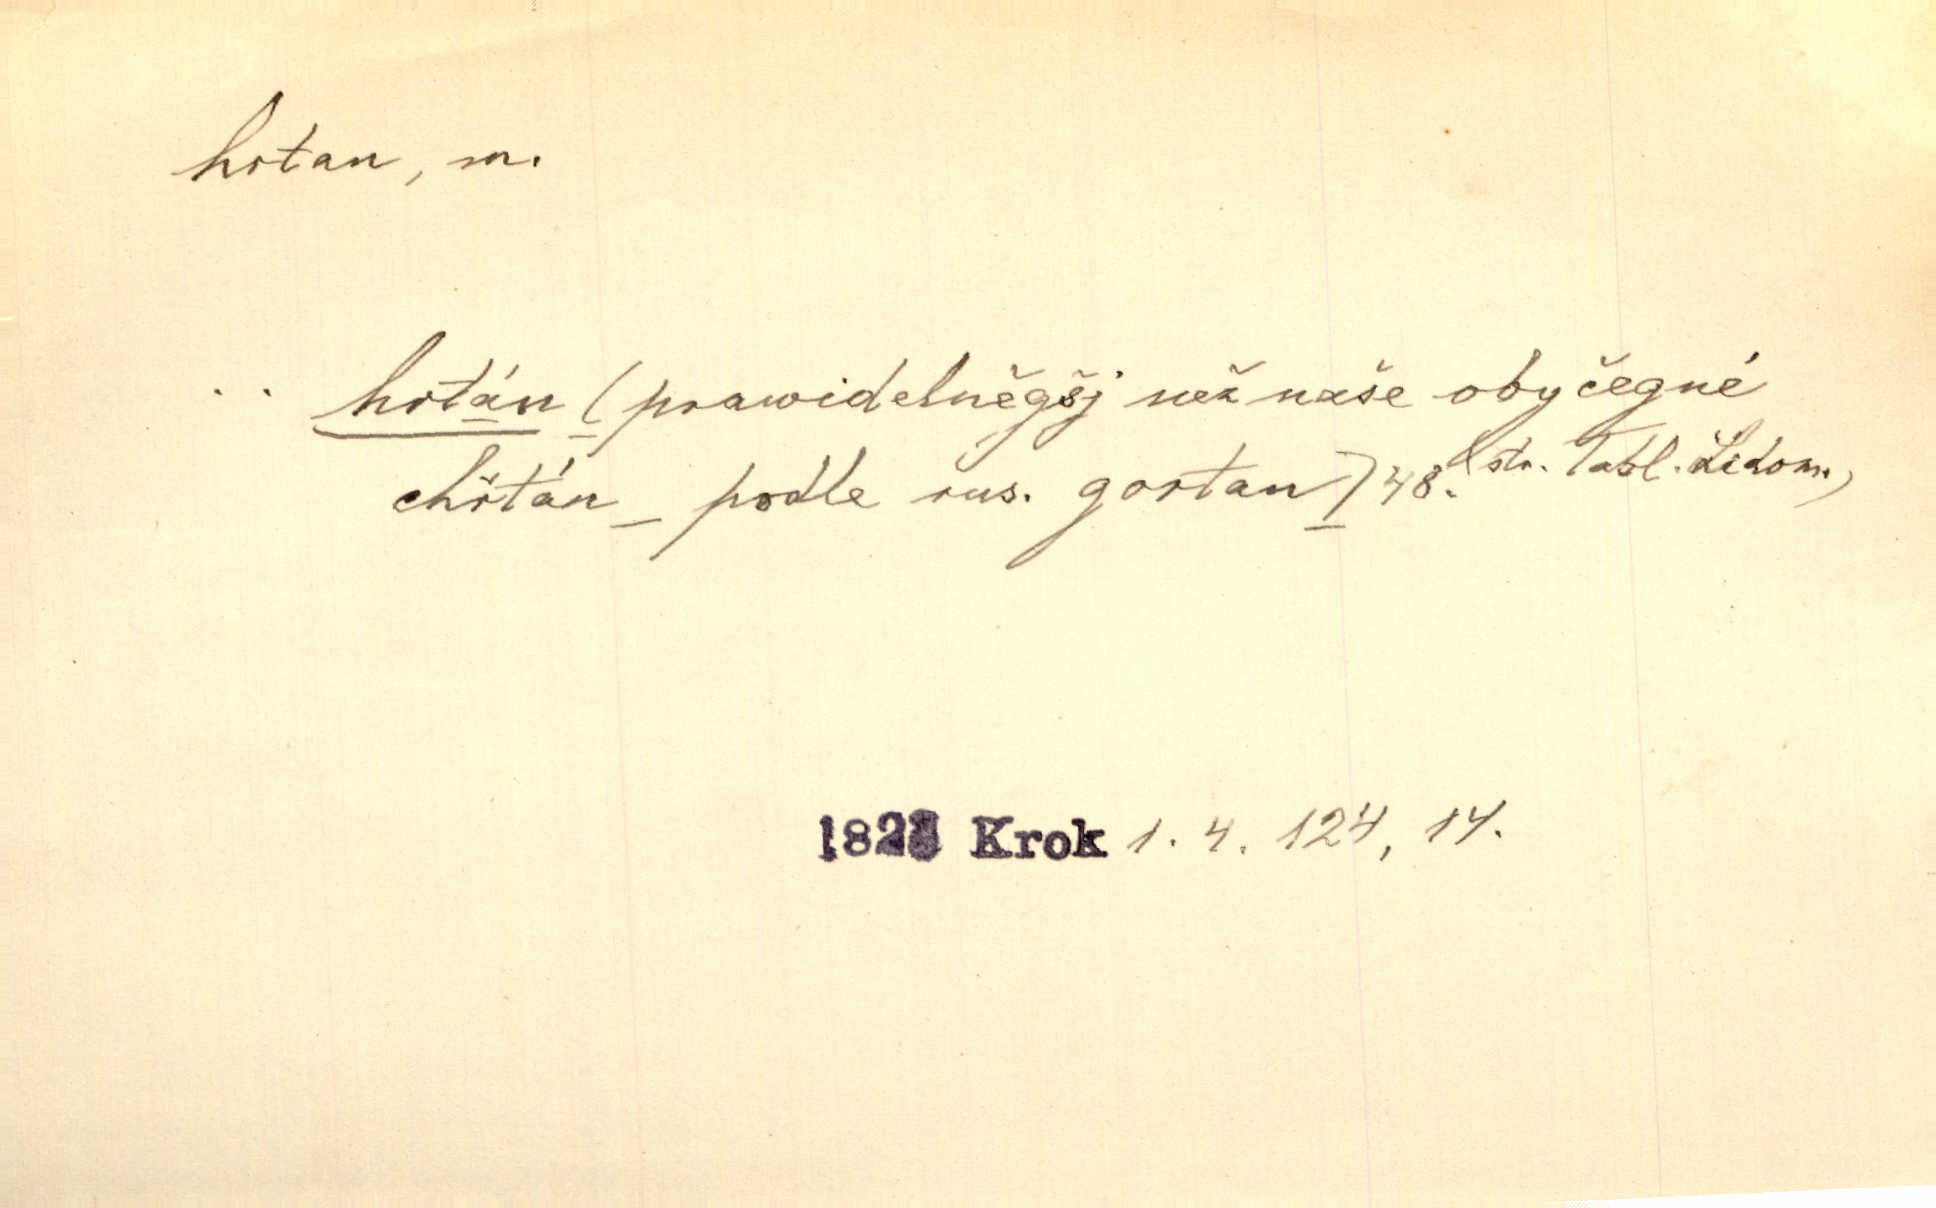 hrtan, m.
.. hrtán (prawidelněgšj než naše obyčegné
chřtán – podle rus. gortan) 48. (str. Tabl. Lidom.)
Krok 1. 4. 124, 14.